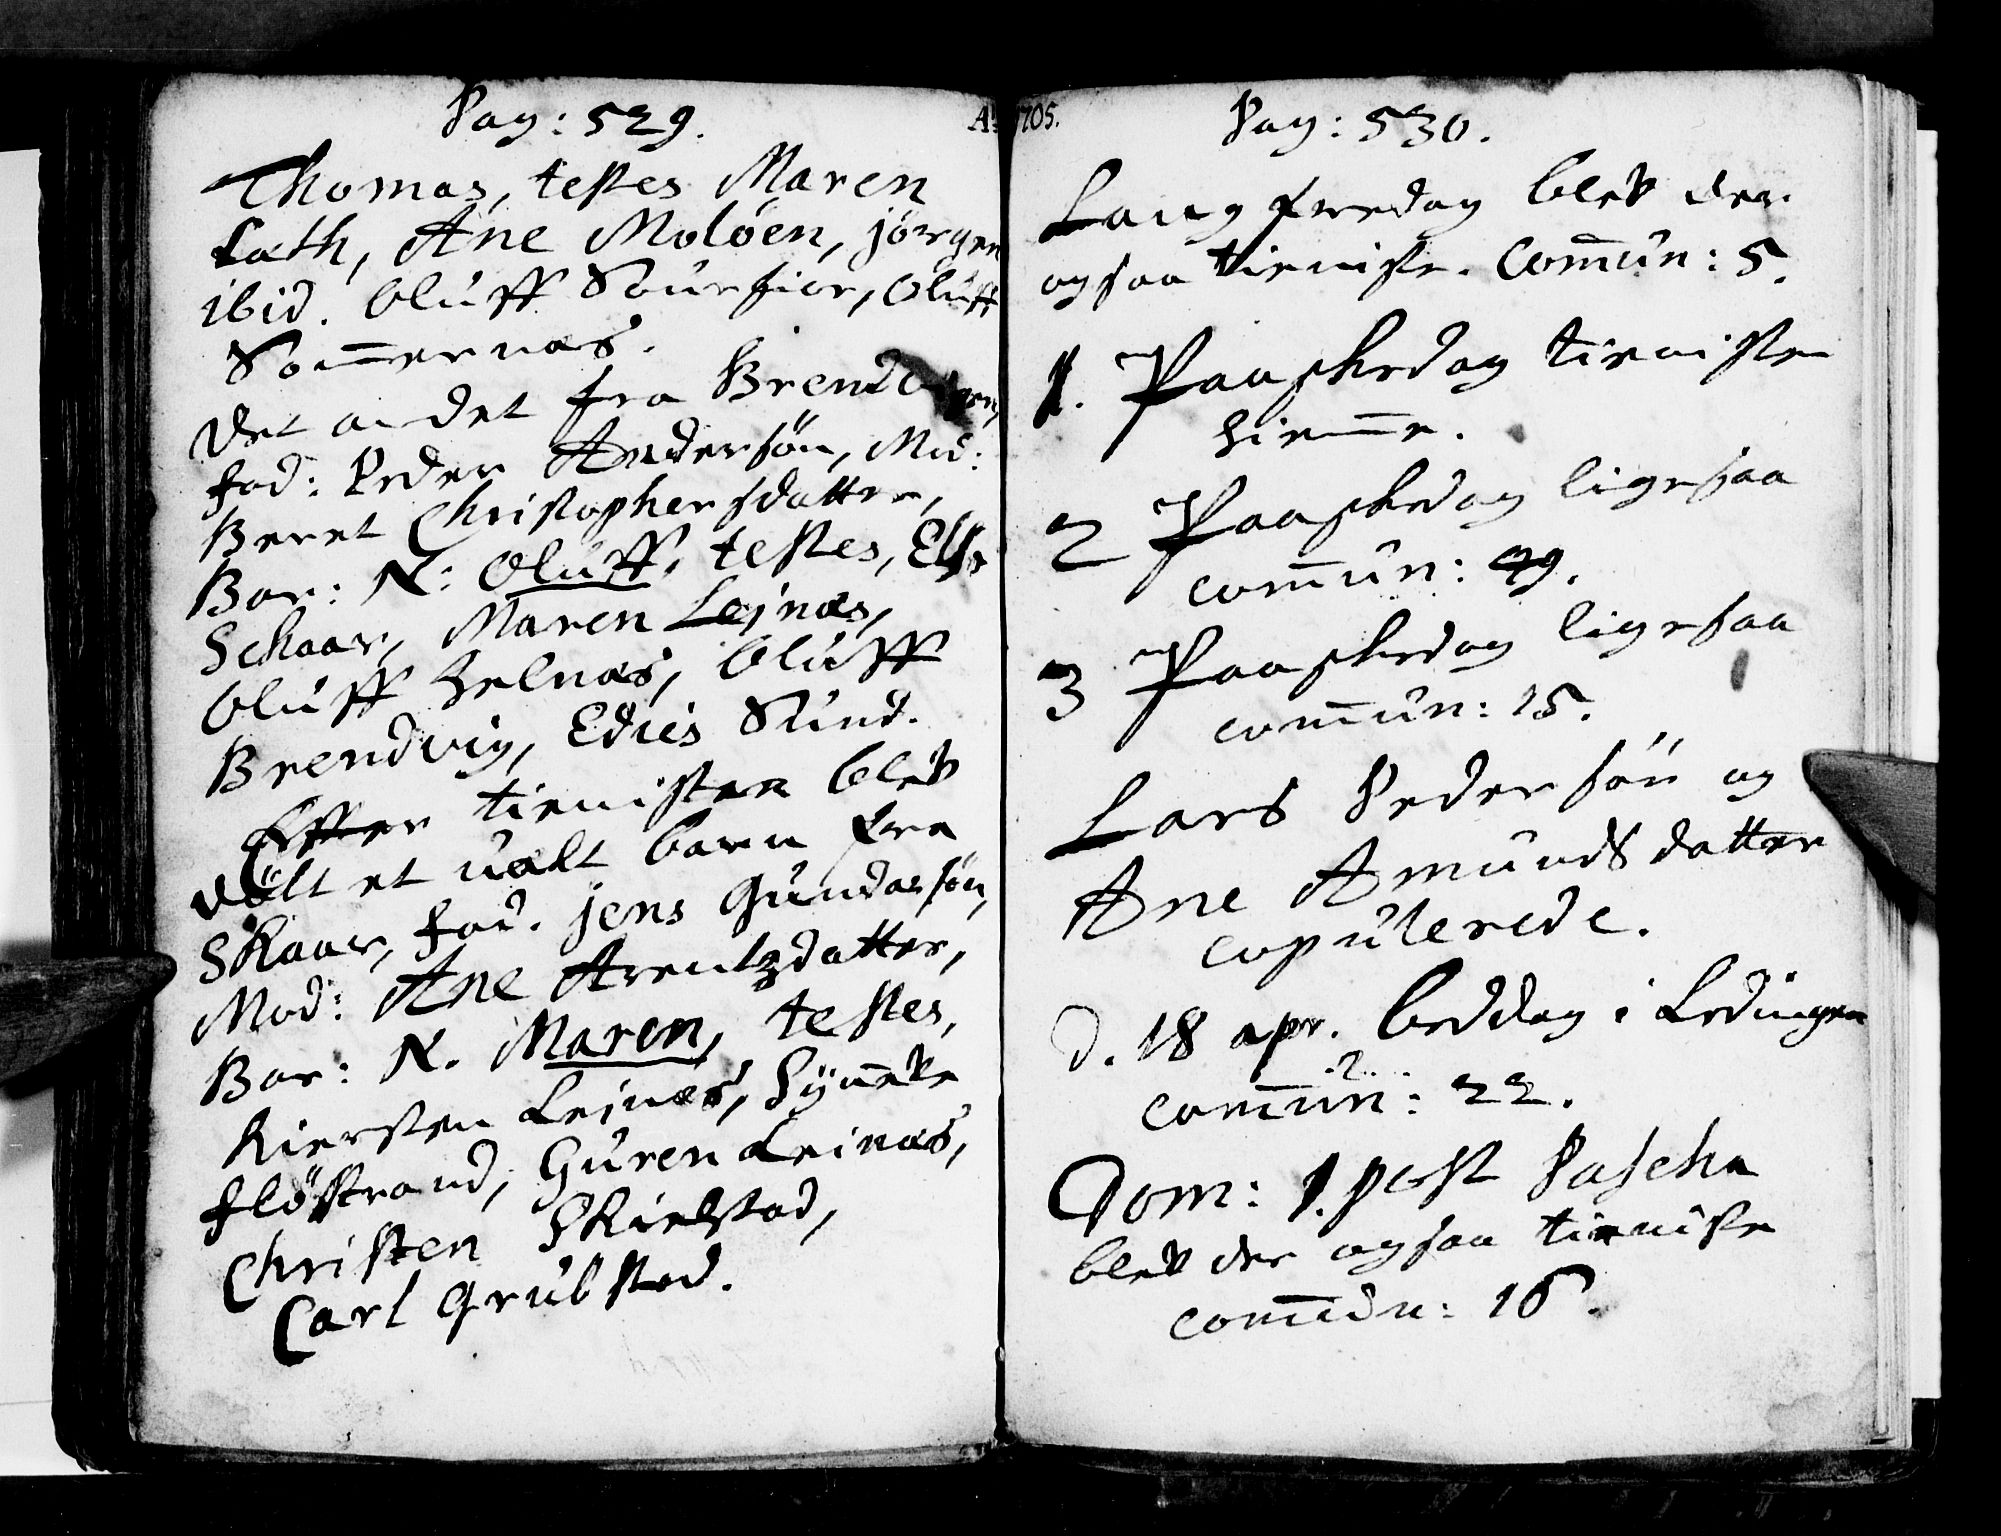 Pag: 529.
Thomas, testes Maren
Cath, Ane Molöen, jörgen
ibid. Oluff Sourfior, Oluff
Som̄ernæs.
Det andet fra
fad: Peder Andersön, Mod:
Beret Christophersdatter,
Bar: N: Oluff, testes, Else
Schaar, Maren Lejnæs,
Oluff Helnæs, Oluff
Brendvig, Edies Sund.
Effter tienisten blev
døbt et uækt barn fra
Skaar, fad. jens Gundersön,
Mod: Ane Arentzdatter,
Bar: N. Maren, testes,
Kiersten Lejnæs, Syn̄eve
Flöstrand, Guren Leinæs,
Christen Skielstad,
Carl Grubstad.
Ao 1705.
Pag: 530.
Lang fredag blev der
ogsaa tieniste. Com̄un: 5.
1. Paaskedag tienisten
hiem̄e.
2 Paaskedag ligesaa
com̄un: 49.
3 Paaskedag ligesaa
com̄un: 15.
Lars Pedersön og
Ane Amundsdatter
copulerede.
d. 18 apr. beddag i Lödingen
com̄un: 22.
Dom: 1. post Pascha
blev der ogsaa tieniste
com̄un: 16.